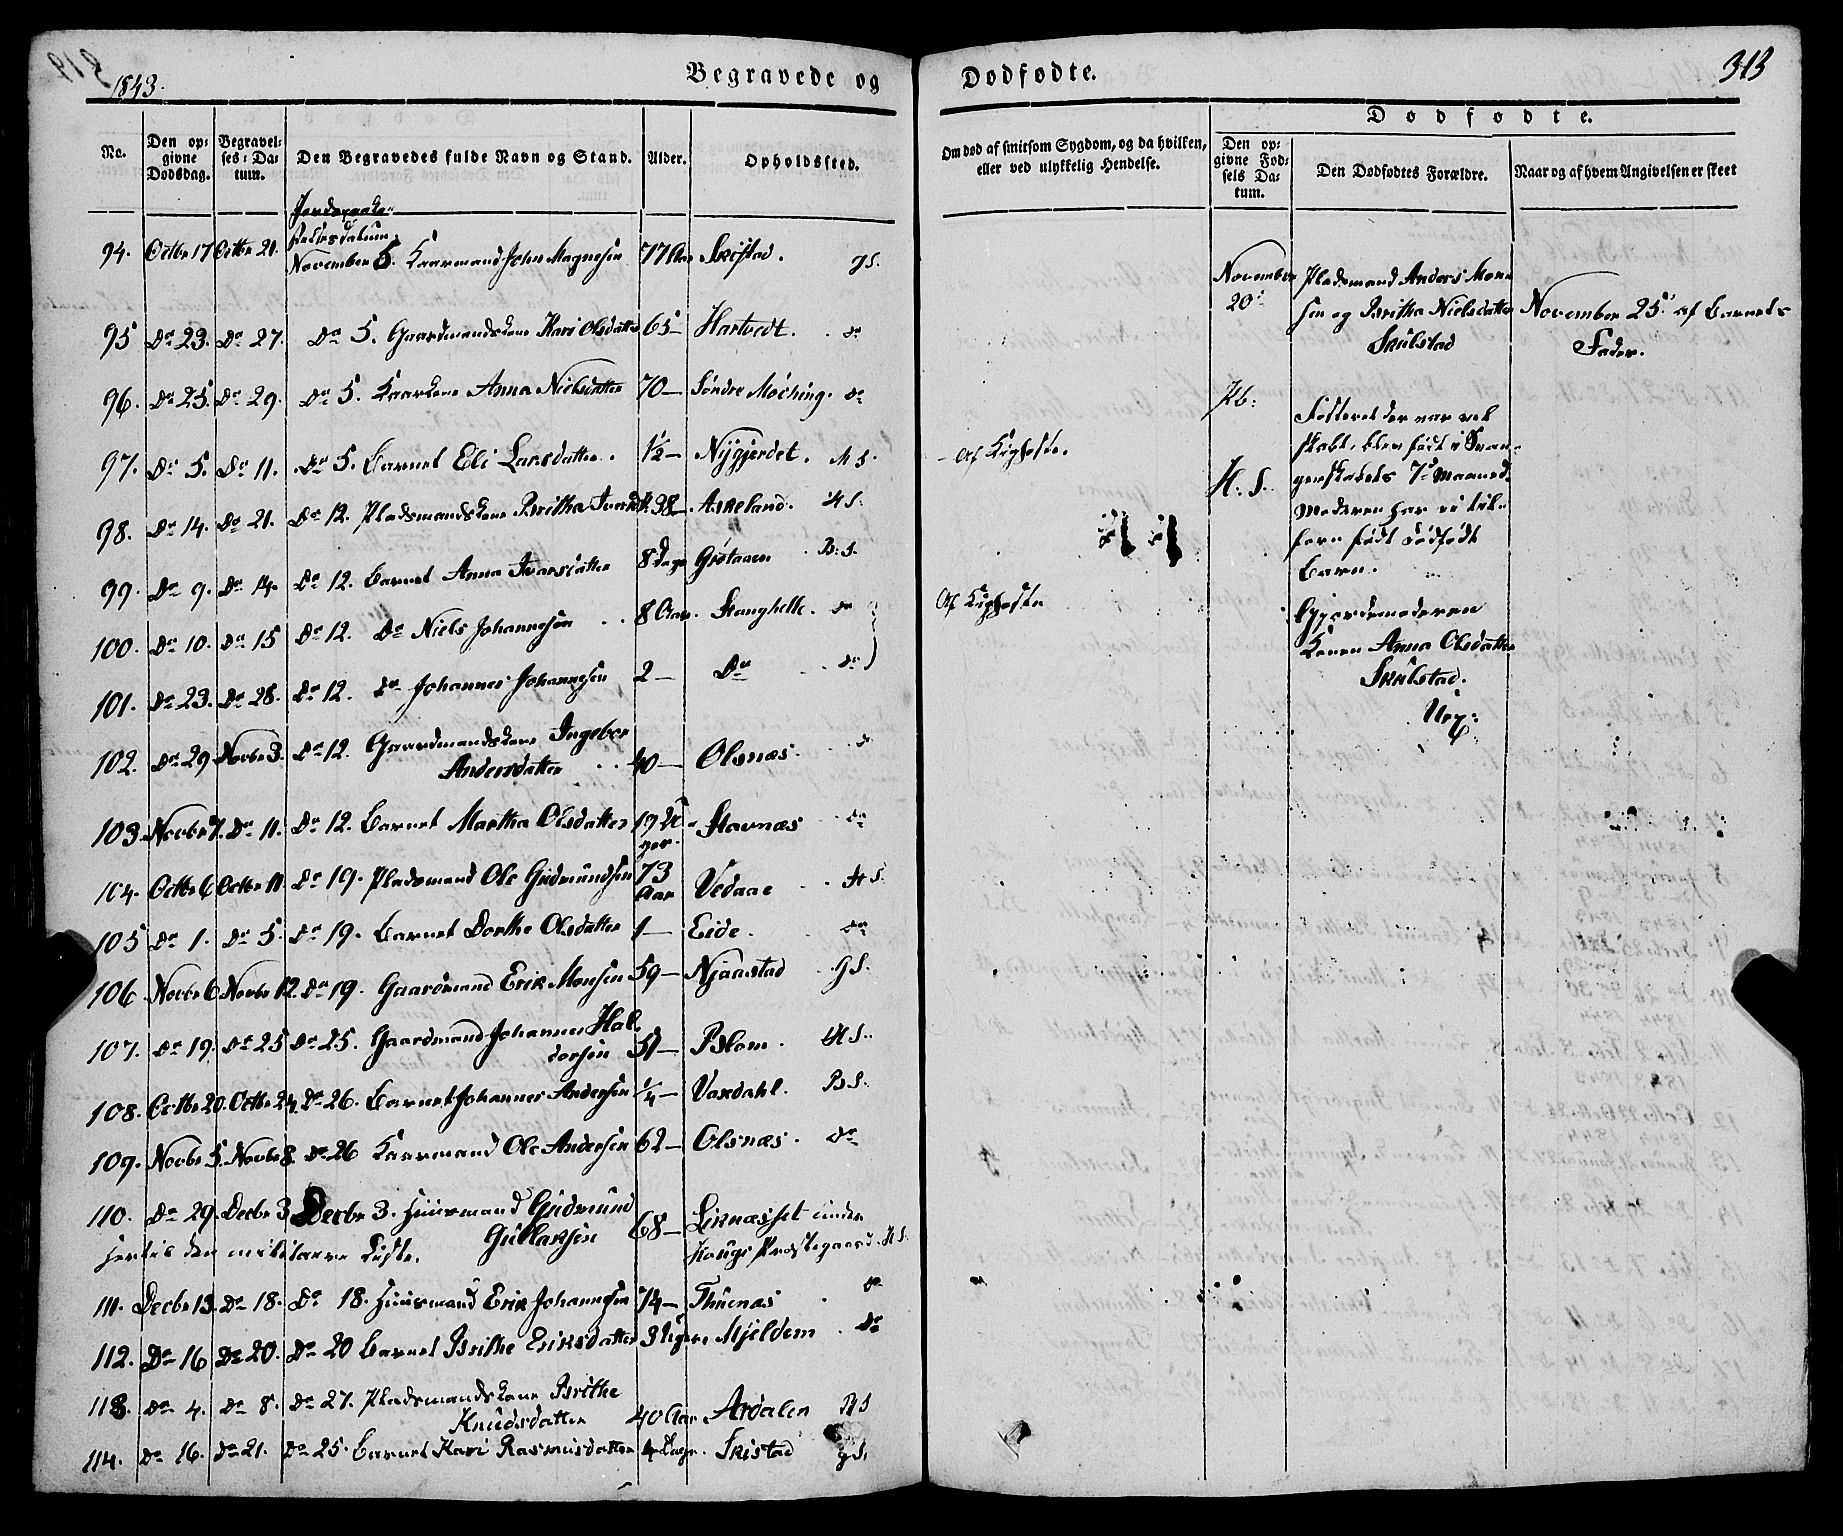 1843.
Begravede og
No.
Den op-
givne
Dødsdag.
Begravel-
ses-Da-
tum.
Den Begravedes fulde Navn og Stand.
Alder.
Opholdssted.
94. Octbr 17 Octbr 21. November 5. Kaarmand John Magnesen 77 Aar Skistad. gS.
95 Do 23. Do 27. Do 5. Gaardmandskone Kari Olsdatter 65— Hartvedt. Do
96. Do 25. Do 29. Do 5. Kaarkone Anna Nielsdatter 70— Søndre Møching. Do
97. Do 5. Do 11. Do 5. Barnet Eli Larsdatter. 1½— Nygjerdet. M S.
98. Do 14. Do 21. Do 12. Pladsmandskone Britha Ivarsd. 38— Askeland. H S.
99. Do 9. Do 14. Do 12. Barnet Anna Ivarsdatter 8 Dage Grøtaaen B. S.
100. Do 10. Do 15 Do 12. Do Niels Johannesen 8 Aar. Stanghelle. Do
101. Do 23. Do 28. Do 12. Do Johannes Johannesen 2— Do Do
102. Do 29 Novbr 3. Do 12. Gaardmandskone Ingebor
Andersdatter 40— Olsnæs. Do
103. Novbr 7. Do 11. Do 12. Barnet Martha Olsdatter 19 U-
ger. Stavnæs Do
104. Octbr 6 Octbr 11. Do 19. Pladsmand Ole Gudmundsen 73
Aar Vedaae H S.
105 Do 1. Do 5. Do 19. Barnet Dorthe Olsdatter 1— Eide. Do
106 Novbr 6. Novbr 12. Do 19. Gaardmand Erik Monsen 59— Njaastad gS.
107. Do 19. Do 25 Do 25. Gaardmand Johannes Hal-
dorsen 51— Blom. H S.
108. Octbr 20. Octbr 24. Do 26. Barnet Johannes Andersen ¼— Vaxdahl. B S.
109. Novbr 5. Novbr 8. Do 26 Kaarmand Ole Andersen 62— Olsnæs. Do
110. Do 29. Decbr 3. Decbr 3. Huusmand Gudmund
Gullaksen 68— under
Hougs Præstegaard. H S.
den militaire Liste.
111. Decbr 13. Do 18. Do 18. Huusmand Erik Johannesen 74— Thunæs Do
112. Do 16 Do 20. Do 20 Barnet Brithe Eriksdatter 3 Uger. Mjeldem Do
113 Do 4. Do 8. Do 27. Pladsmandskone Brithe
Knudsdatter 40 Aar Ardalen B S
114. Do 16. Do 21. Do 25. Barnet Kari Rasmusdatter 4 Dage. Skistad gS.
Dødfødte.
313
Om død af smitsom Sygdom, og da hvilken,
eller ved ulykkelig Hendelse.
Dødfødte.
Den op-
givne Fød-
sels Da-
tum.
Den Dødfødtes Forældre.
Naar og af hvem Angivelsen er skeet
Af Kighoste.
Af Kighoste
November
20.
Pladsmand Anders Mon-
sen og Britha Nielsdatter
Skulstad
November 25. af Barnets
Fader.
H. S.
Fosteret der var vel
skabt, blev født i Svan-
gerskabets 7de Maaned.
Moderen har ei til-
forn født dødfødt
Barn.
Gjordemoderen
Konen Anna Olsdatter
Skulstad.